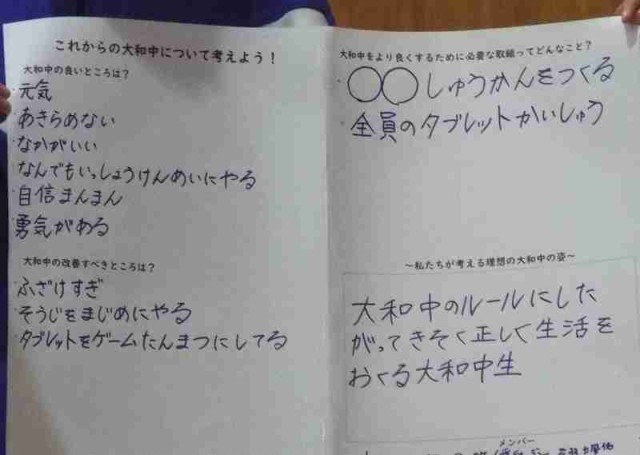 これからの大和中について考えよう！
大和中の良いところは？
・元気
・あきらめない
・なかがいい
・なんでもいっしょうけんめいにやる
・自信まんまん
・勇気がある
大和中の改善すべきところは？
・ふざけすぎ
・そうじをまじめにやる
・タブレットをゲームたんまつにしてる
大和中をより良くするために必要な取組ってどんなこと？
・〇〇しゅうかんをつくる
・全員のタブレットかいしゅう
～私たちが考える理想の大和中の姿～
大和中のルールにした
がってきそく正しく生活を
おくる大和中生
メンバー